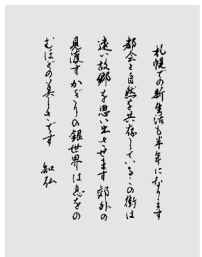 札幌での新生活も半年になります
都会と自然が共存しているこの街は
遠い故郷を思い出させます 郊外の
見渡すかぎりの銀世界は息をの
むほどの美しさです 知弘